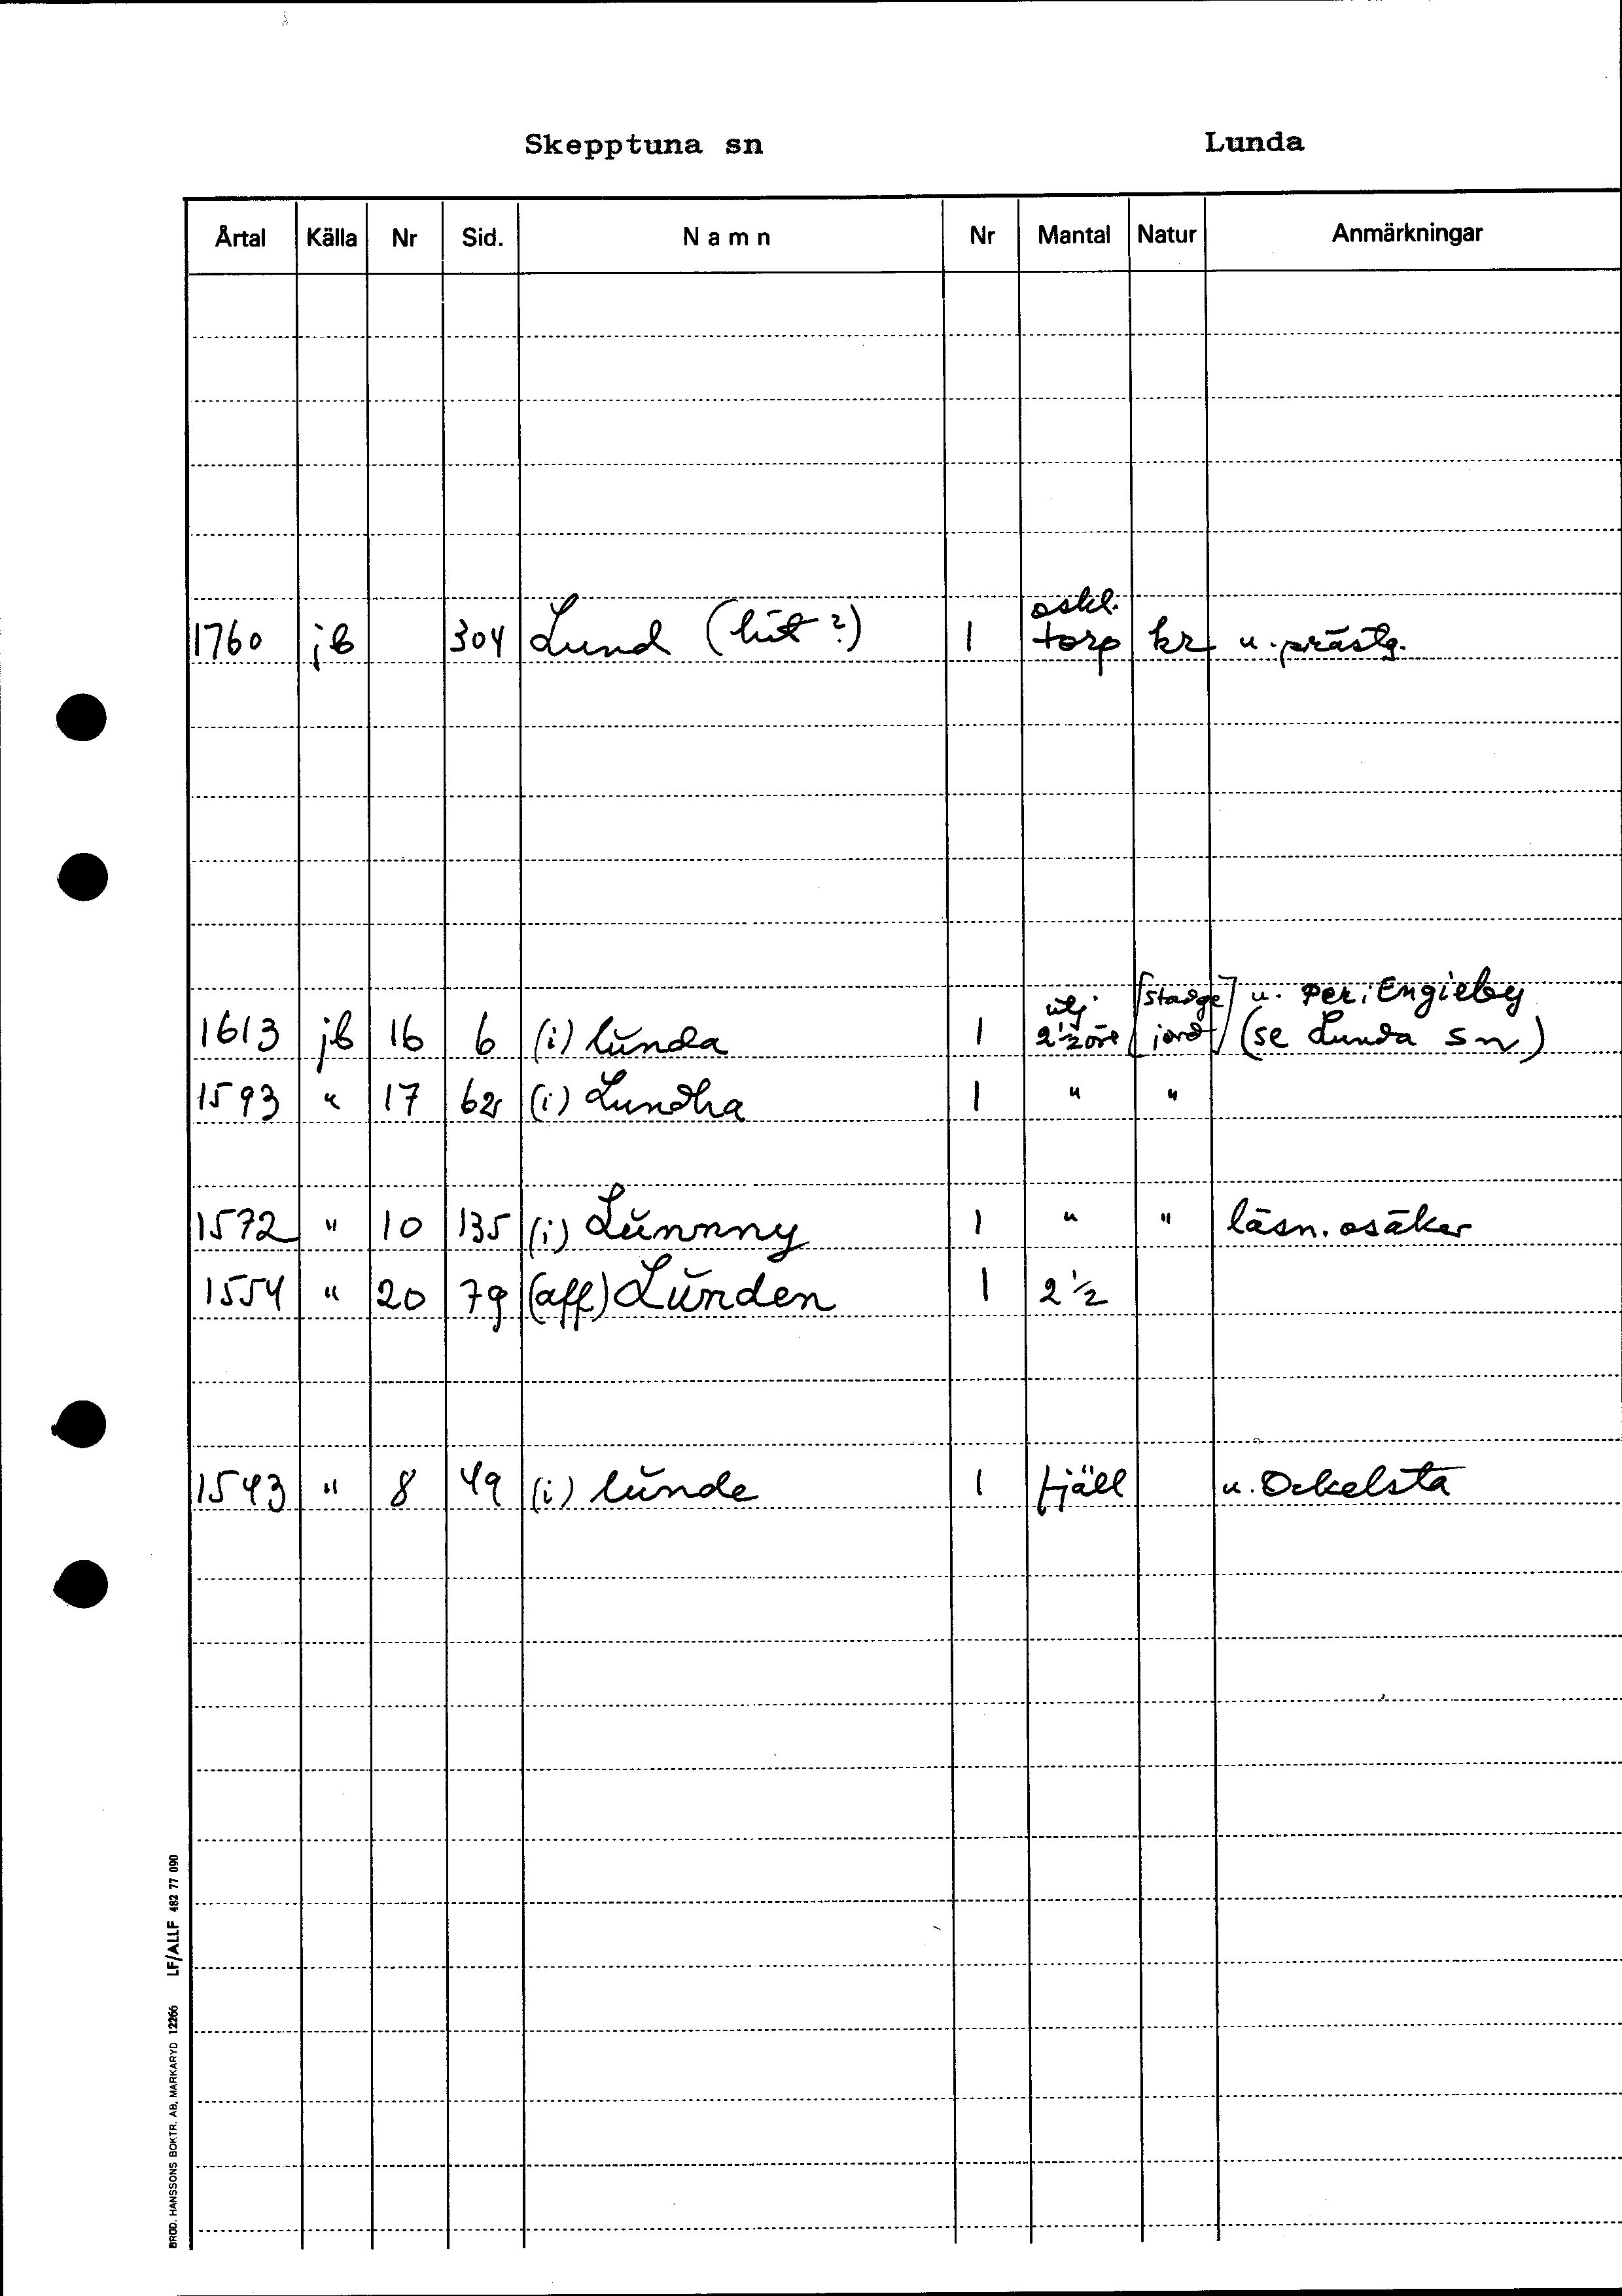 Skepptuna sn Lunda
Årtal Källa Nr Sid. Namn Nr Mantal Natur Anmärkningar
oskl.
1760 jb 304 Lund (hit?) 1 torp kr u. prästg.
utj [stadge] u. Per i Engieby
1613 jb 16 6 (i) lŭnda 1 2½ öre [jord] (se Lunda sn)
1593 " 17 62 (i) Lundha 1 " "
1572 " 10 135 (i) Lŭnnny 1 " " läsn. osäker
1554 " 20 79 (aff) Lŭnden 1 2½
1543 " 8 49 (i) lŭnde 1 fjäll u. Ockelsta
BROD. HANSSONS BOKTR. AB, MARKARYD 12266 LF/ALLF 482 77 090